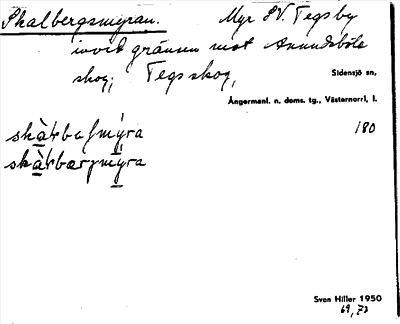 Skalbergsmyran. Myr SV. Tegsby
invid gränsen mot Anundsböle
skog, Tegs skog,
Sidensjö sn,
Ångermanl. n. doms. tg., Västernorrl, l.
180
Sven Hiller 1950
69, 73